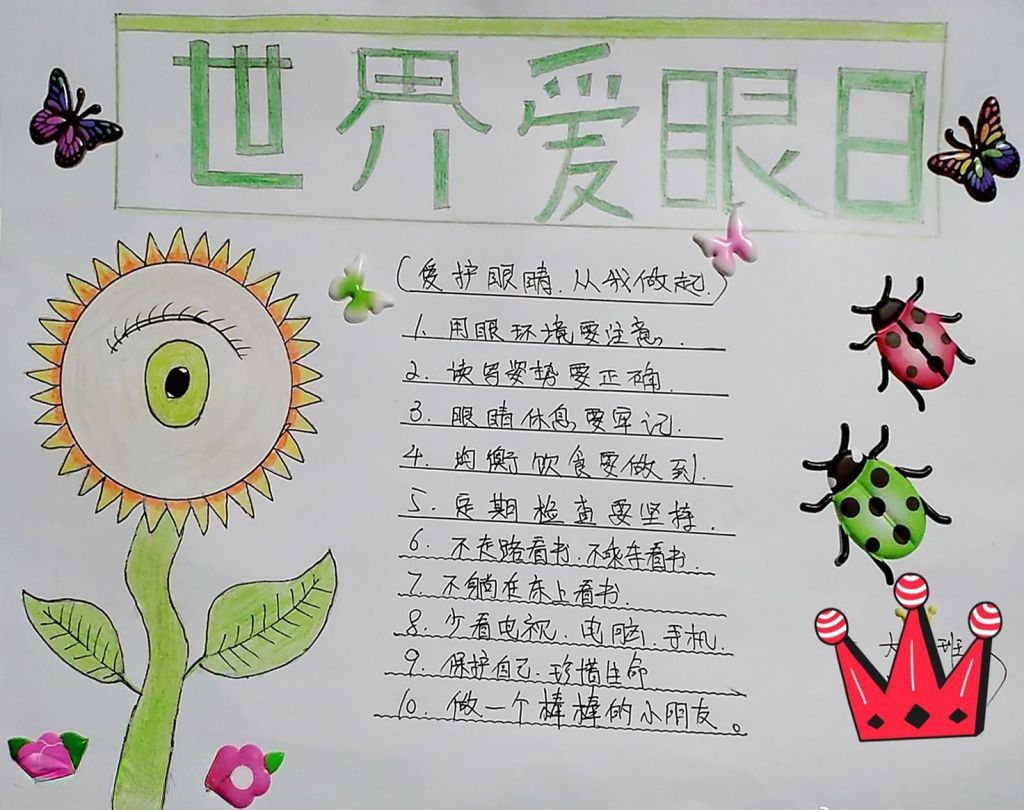 世界爱眼日
(爱护眼睛.从我做起.)
1.用眼环境要注意.
2.读写姿势要正确.
3.眼睛休息要牢记.
4.均衡饮食要做到.
5.定期检查要坚持.
6.不走路看书.不乘车看书.
7.不躺在床上看书.
8.少看电视.电脑.手机.
9.保护自己.珍惜生命
10.做一个棒棒的小朋友。
大 班